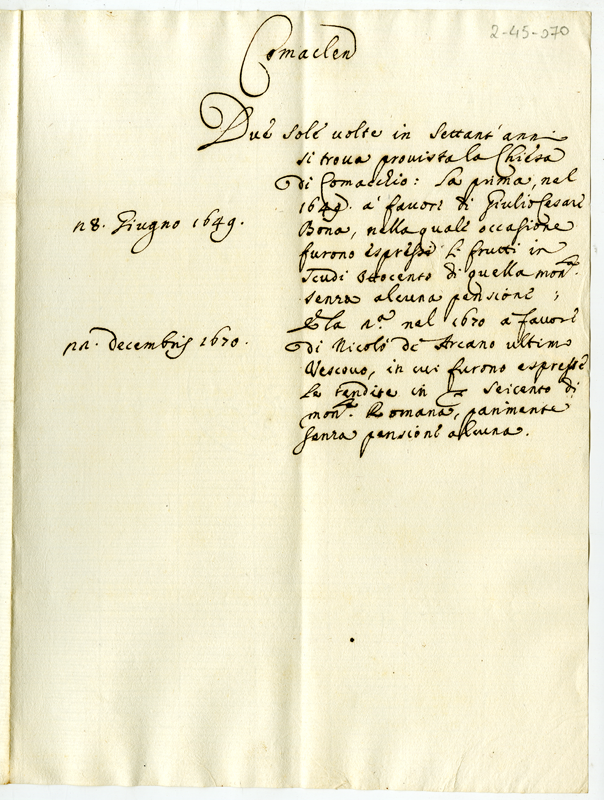 2-45-070
Comaclen
Due sole volte in settant'anni
si trova provista la Chiesa
di Comacchio: la prima, nel
1649. à favore di Giulio Cesare
28. Giugno 1649.
Bona, nella quale occasione
furono espressi li frutti in
scudi ottocento di quella mon.ta
senza alcuna pensione;
E la 2.a nel 1670 à favore
22. decembris 1670.
di Nicolò de Arcano ultimo
Vescovo, in cui furono espresse
le rendite in seicento di
mon.ta Romana, parimente
senza pensione alcuna.